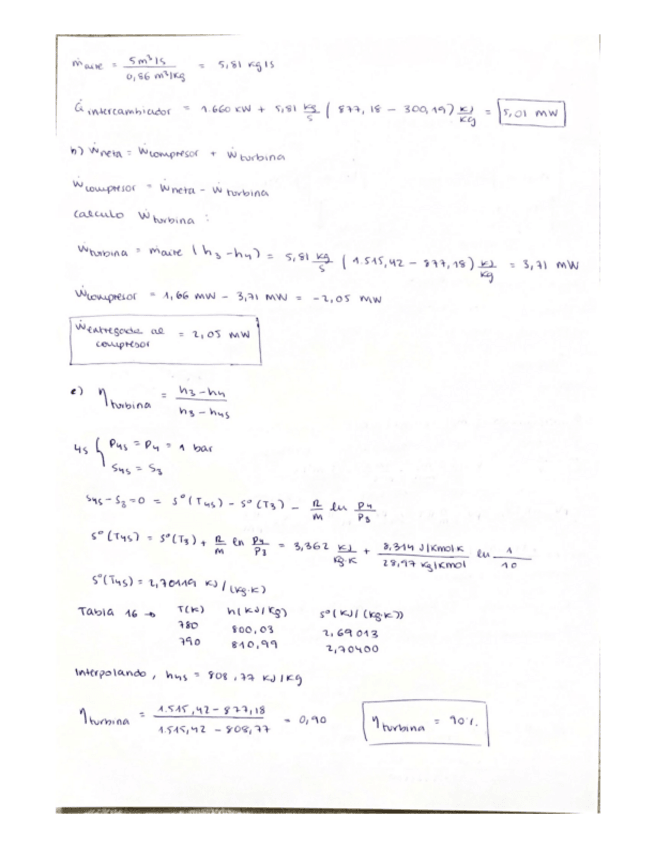 ṁaire = 5 m³/s / 0,86 m³/kg = 5,81 kg/s
Q̇intercambiador = 1.660 kW + 5,81 kg/s (877,18 - 300,19) kJ/kg = 5,01 MW
b) Ẇneta = Ẇcompresor + Ẇturbina
Ẇcompresor = Ẇneta - Ẇturbina
Calculo Ẇturbina :
Ẇturbina = ṁaire (h3 - h4) = 5,81 kg/s (1.515,42 - 877,18) kJ/kg = 3,71 MW
Ẇcompresor = 1,66 MW - 3,71 MW = -2,05 MW
Ẇentregada al compresor = 2,05 MW
c) ηturbina = h3 - h4 / h3 - h4s
4s { P4s = P4 = 1 bar
S4s = S3
S4s - S3 = 0 = S°(T4s) - S°(T3) - R/M ln P4/P3
S°(T4s) = S°(T3) + R/M ln P4/P3 = 3,362 kJ/kg·K + 8,314 J/kmol K / 28,97 kg/kmol ln 1/10
S°(T4s) = 2,70119 kJ/(kg·K)
Tabla 16 → T(K) h(kJ/kg) S°(kJ/(kg·K))
780 800,03 2,69013
790 810,99 2,70400
Interpolando, h4s = 808,77 kJ/kg
ηturbina = 1.515,42 - 877,18 / 1.515,42 - 808,77 = 0,90 ηturbina = 90%